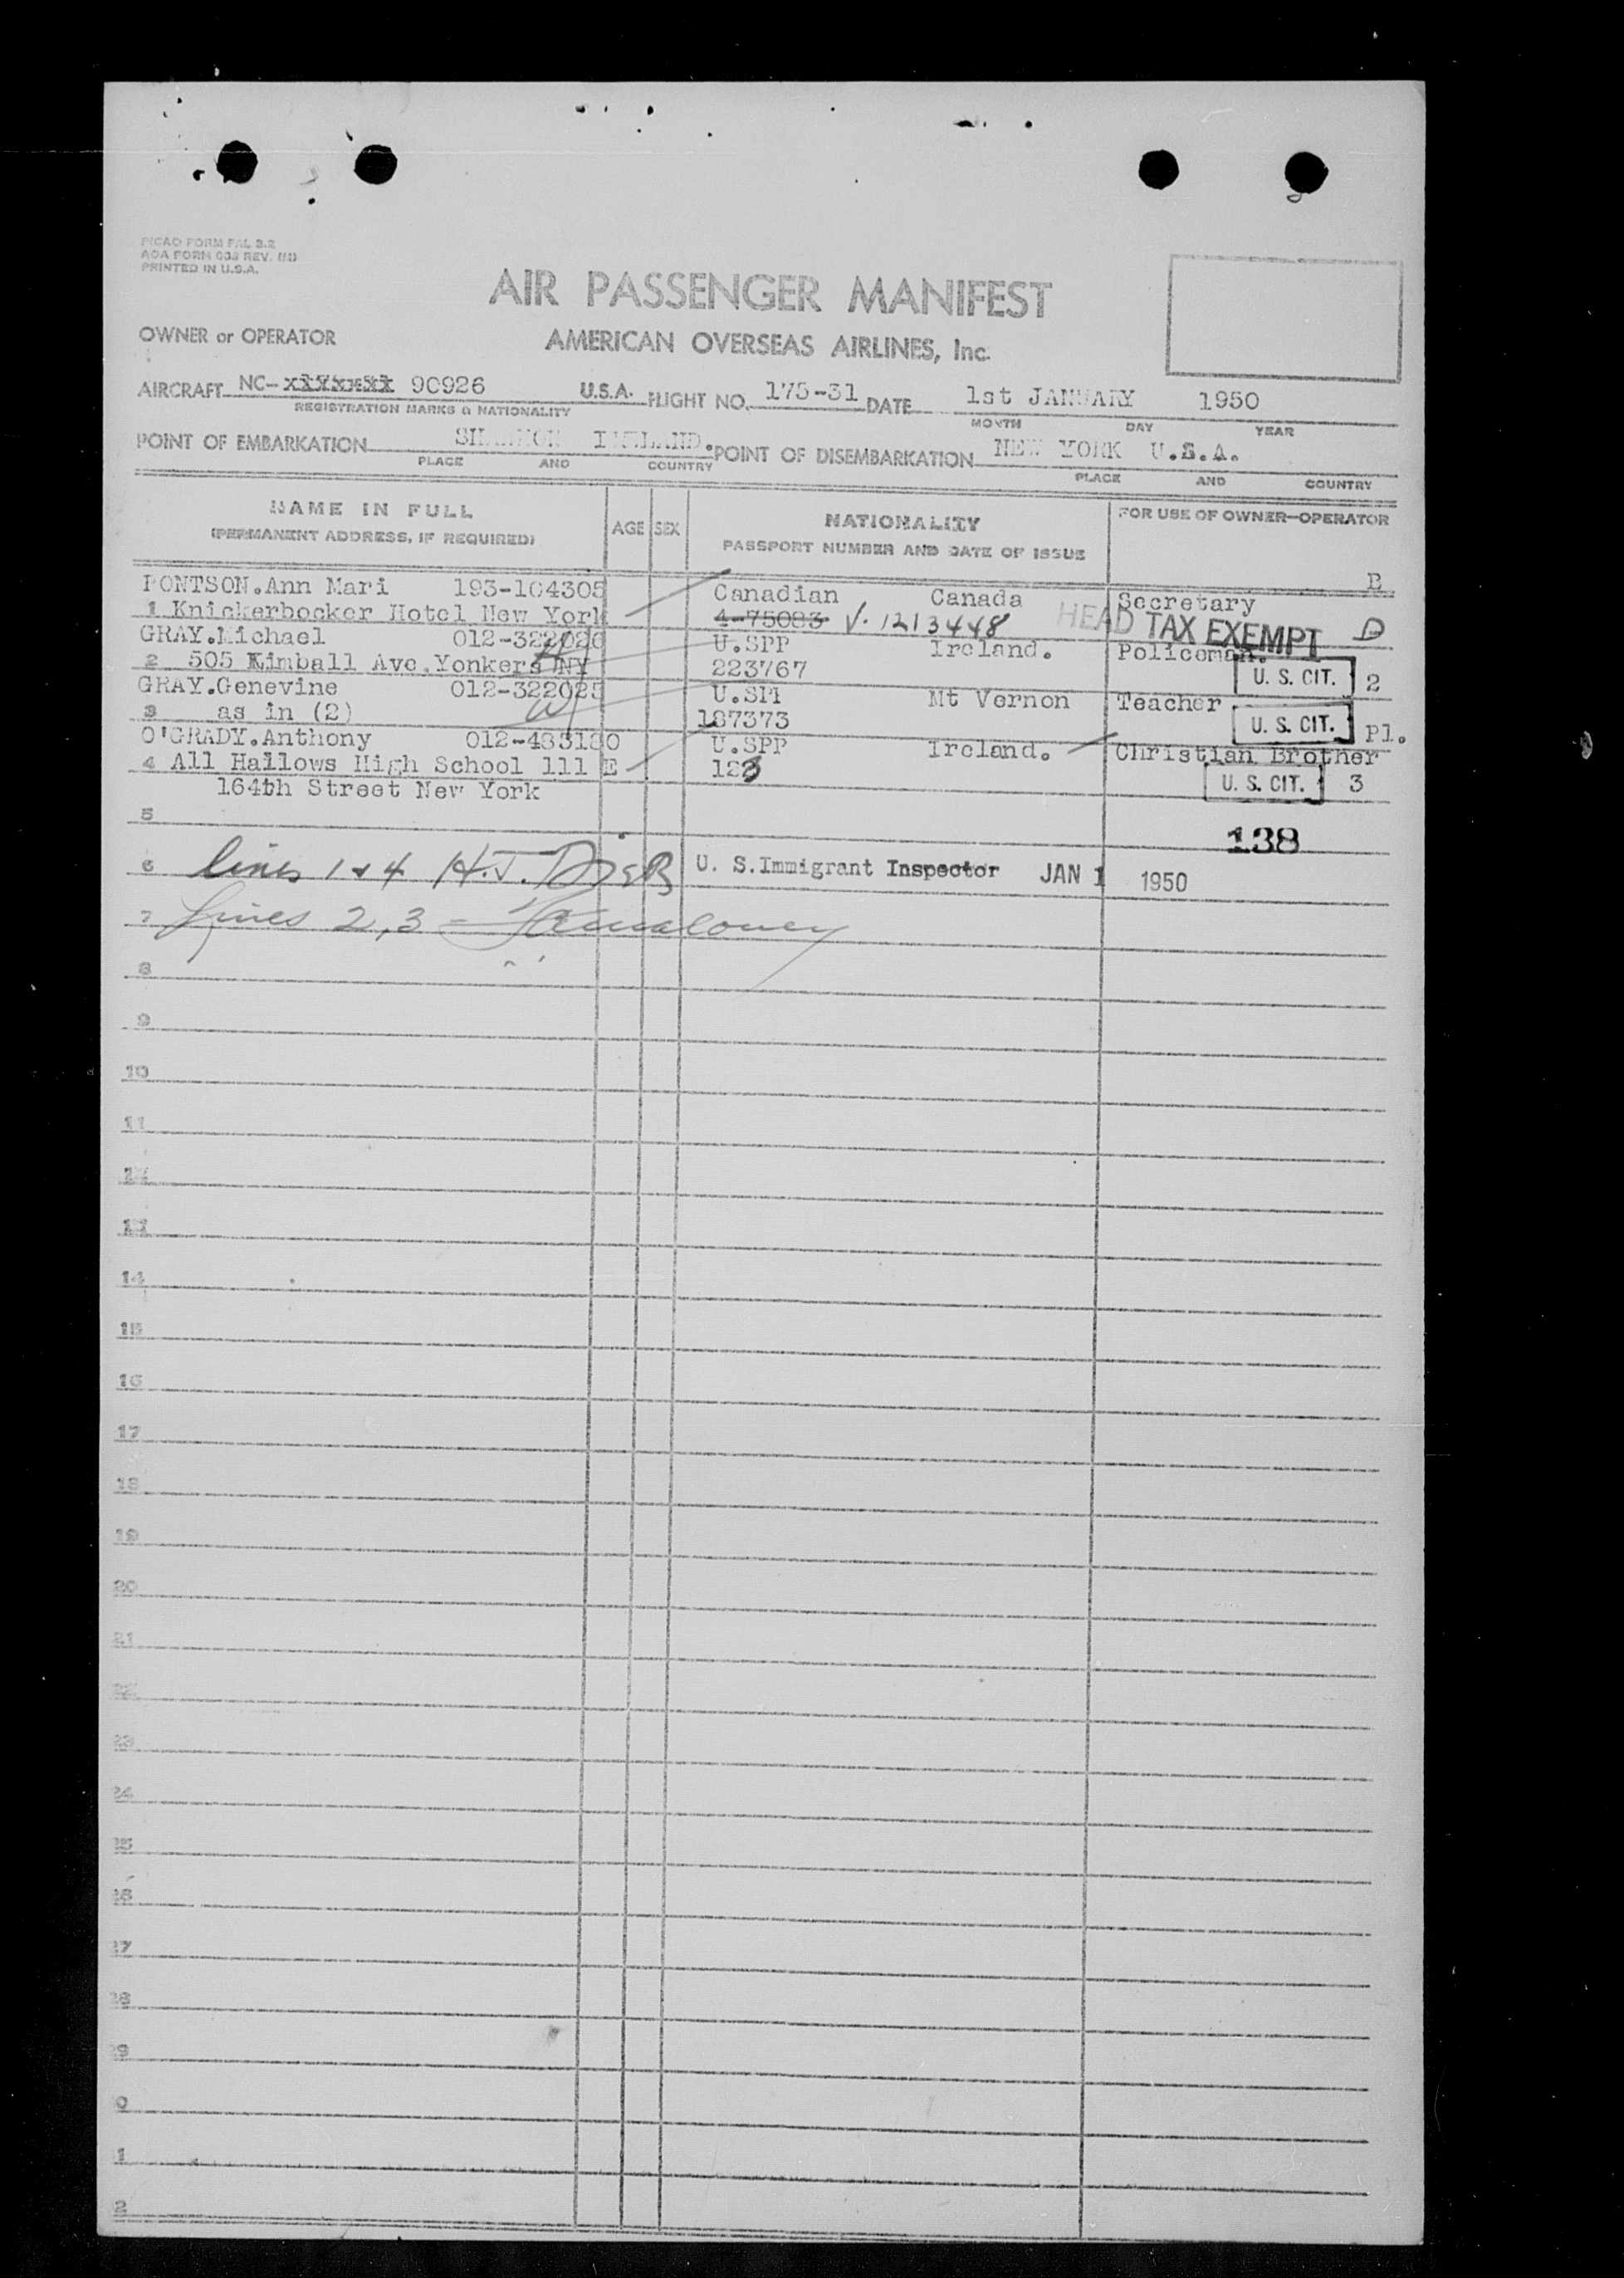 PICAO FORM FAL 2.2
PRINTED IN U.S.A.
AIR PASSENGER MANIFEST
OWNER or OPERATOR AMERICAN OVERSEAS AIRLINES, Inc.
AIRCRAFT NC- 90926 U.S.A. FLIGHT NO. 175-31 DATE 1st JANUARY 1950
REGISTRATION MARKS & NATIONALITY MONTH DAY YEAR
POINT OF EMBARKATION SHANNON IRELAND. POINT OF DISEMBARKATION NEW YORK U.S.A.
PLACE AND COUNTRY PLACE AND COUNTRY
NAME IN FULL
(PERMANENT ADDRESS, IF REQUIRED) AGE SEX NATIONALITY
PASSPORT NUMBER AND DATE OF ISSUE FOR USE OF OWNER—OPERATOR
PONTSON.Ann Mari 193-104305 Canadian Canada Secretary
1 Knickerbocker Hotel New York 4-75083 V. 1213448 HEAD TAX EXEMPT D
GRAY.Michael 012-322026 U.SPP Ireland. Policeman.
2 505 Kimball Ave.Yonkers NY 223767 U. S. CIT. 2
GRAY.Genevine 012-322025 Mt Vernon Teacher
3 as in (2) 187373 U. S. CIT. Pl.
O'GRADY.Anthony 012-483180 U.SPP Ireland. Christian Brother
4 All Hallows High School 111 E 123 U. S. CIT. 3
164th Street New York
5
138
6 lines 1 & 4 H.J. U. S. Immigrant Inspector JAN 1 1950
7 Lines 2, 3 -
8
9
10
11
12
13
14
15
16
17
18
19
20
21
22
23
24
25
26
27
28
29
0
1
2